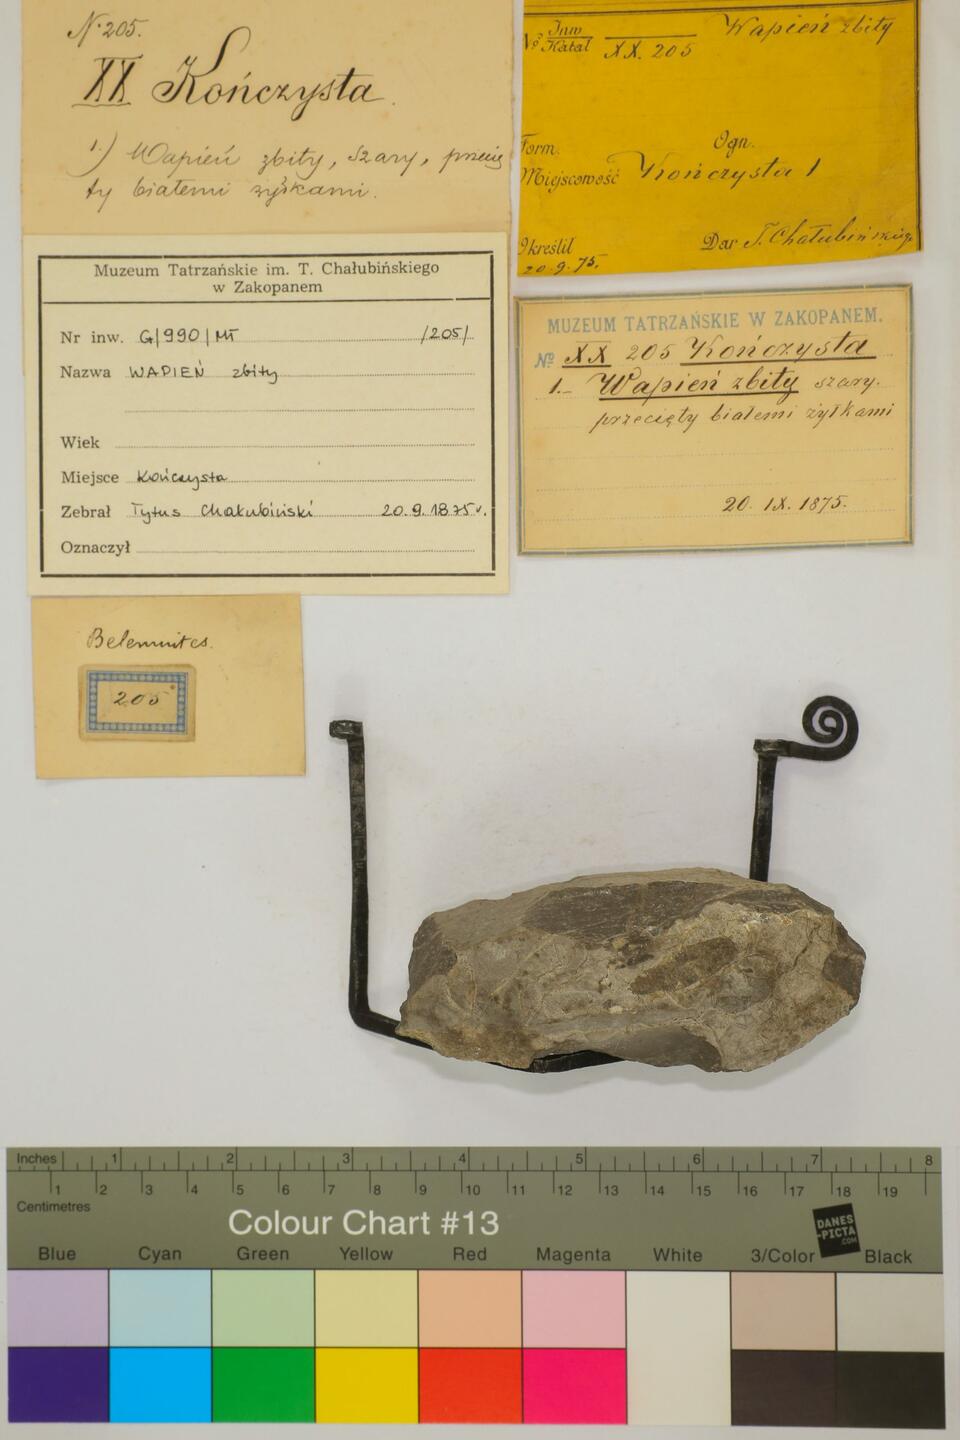 N. 205.
XX Kończysta.
1.) Wapień zbity, szary, przecię
ty białemi żyłkami.
№ Inw
Katal XX. 205 Wapień zbity
Form. Ogn.
Miejscowość Kończysta 1
Określił Dar T. Chałubińskiego
20.9.75.
Muzeum Tatrzańskie im. T. Chałubińskiego
w Zakopanem
Nr inw. G/990/MT /205/
Nazwa WAPIEŃ zbity
Wiek
Miejsce Kończysta
Zebrał Tytus Chałubiński 20.9.1875r.
Oznaczył
MUZEUM TATRZAŃSKIE W ZAKOPANEM.
№ XX 205 Kończysta
1. Wapień zbity szary.
przecięty białemi żyłkami
20. IX. 1875.
Belemnites.
205
Inches 1 2 3 4 5 6 7 8
1 2 3 4 5 6 7 8 9 10 11 12 13 14 15 16 17 18 19
Centimetres
Colour Chart #13
DANES
-PICTA
.COM
Blue Cyan Green Yellow Red Magenta White 3/Color Black